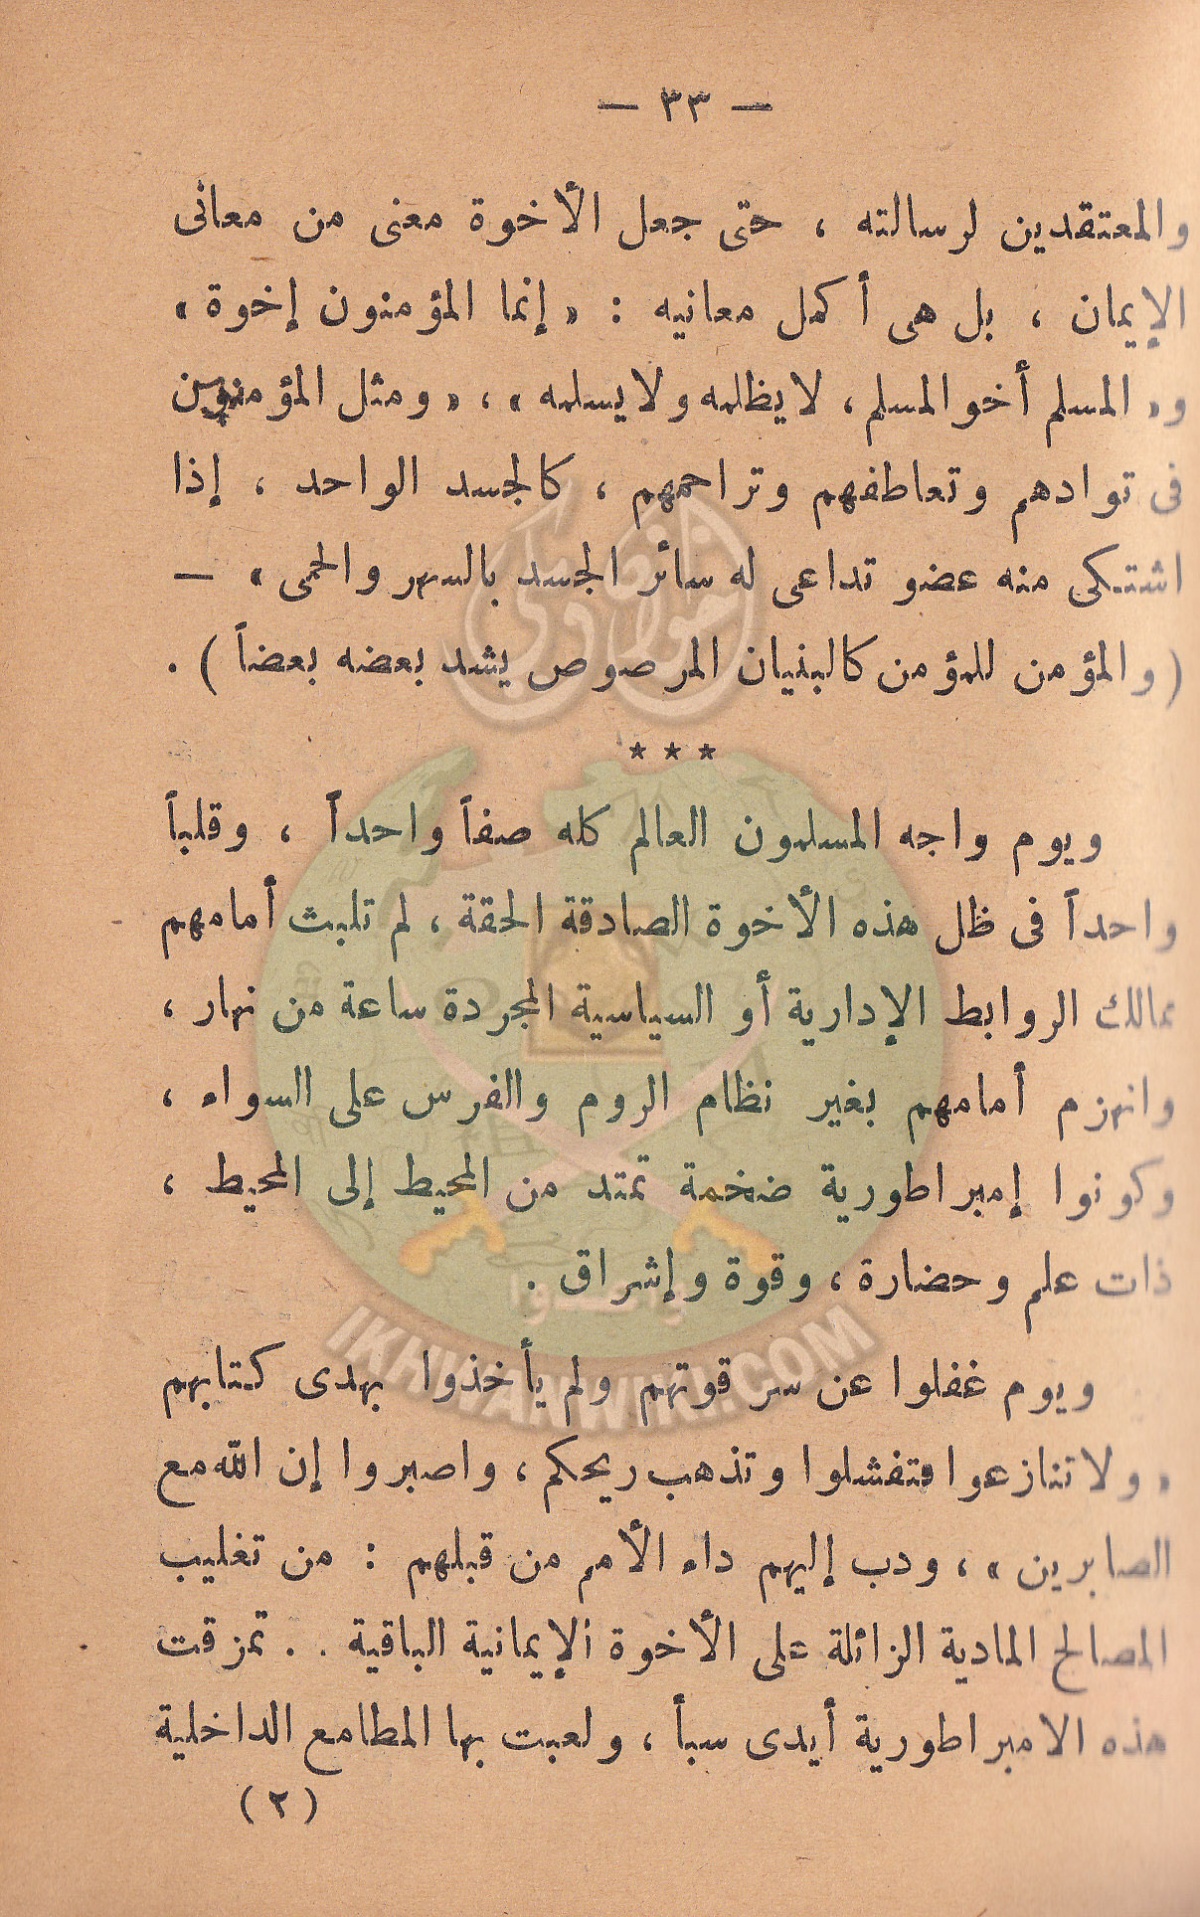 — ٣٣ —
والمعتقدين لرسالته ، حتى جعل الأخوة معنى من معانى
الإيمان ، بل هى أكمل معانيه : « إنما المؤمنون إخوة »
و« المسلم أخو المسلم ، لا يظلمه ولا يسلمه » ، « ومثل المؤمنين
فى توادهم وتعاطفهم وتراحمهم ، كالجسد الواحد ، إذا
اشتكى منه عضو تداعى له سائر الجسد بالسهر والحمى » —
( والمؤمن للمؤمن كالبنيان المرصوص يشد بعضه بعضاً ) .
* * *
ويوم واجه المسلمون العالم كله صفاً واحداً ، وقلباً
واحداً فى ظل هذه الأخوة الصادقة الحقة ، لم تلبث أمامهم
ممالك الروابط الإدارية أو السياسية المجردة ساعة من نهار ،
وانهزم أمامهم بغير نظام الروم والفرس على السواء ،
وكونوا إمبراطورية ضخمة تمتد من المحيط إلى المحيط ،
ذات علم وحضارة ، وقوة وإشراق .
ويوم غفلوا عن سر قوتهم ولم يأخذوا بهدى كتابهم
« ولا تنازعوا فتفشلوا وتذهب ريحكم ، واصبروا إن الله مع
الصابرين » ، ودب إليهم داء الأمم من قبلهم : من تغليب
المصالح المادية الزائلة على الأخوة الإيمانية الباقية . . تمزقت
هذه الامبراطورية أيدى سبأ ، ولعبت بها المطامع الداخلية
( ٢ )
IKHWANWIKI.COM